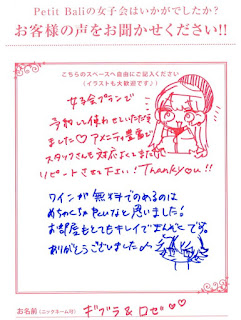 Petit Baliの女子会はいかがでしたか?
お客様の声をお聞かせください!!
こちらのスペースへ自由にご記入ください
(イラストも大歓迎です)
女子会プランで
予約し使わせていただき
ました♡アメニティ豊富で
スタッフさんも対応よくしてまた
リピートさせて下さい!Thankyou!!
ワインが無料でのめるのは
めちゃくちゃ
いいなと思いました!
お部屋もとてもキレイで
ありがとうございました♪
お名前(ニックネーム可)
ギブラ&ロゼ♡♡